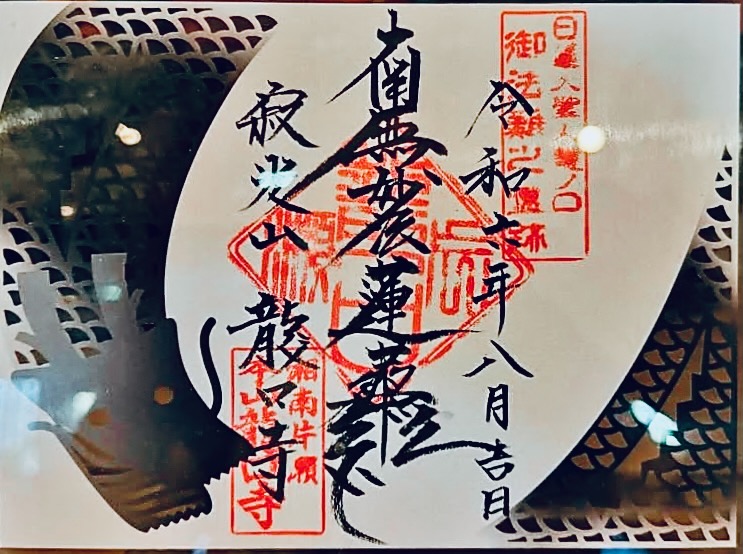 日蓮大聖人龍ノ口
御法難之霊跡
令和六年八月吉日
南無妙法蓮華経
寂光山 龍口寺
湘南片瀬
本山龍口寺